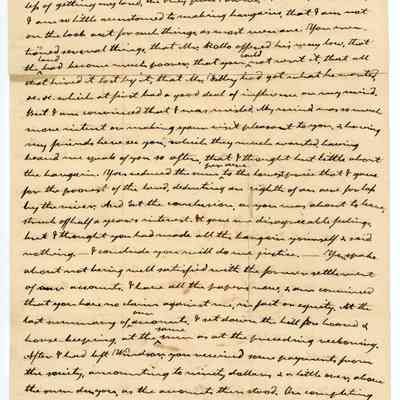 of getting my land, the only
I am so little accustomed to making bargains, that I am not
on the look out for such things, as most men are. You men-
tioned several things, that Mr. Rollo offered his very low, that
the land had become much poorer, that you could not rent it, that all
that hired it lost by it, that Mr. had got what he wanted,
&c. &c. which at first had a good deal of influence on my mind.
But I am convinced that I was misled. My mind was so much
more intent on making your visit pleasant to you, & having
my friends here see you, which they much wanted, having
heard me speak of you so often, that I thought but little about
the bargain. You reduced the sum per acre to the lowest price that I gave
for the poorest of the land, deducting an eighth of an acre for
by the river. And at the conclusion, as you was about to leave,
struck off half a year's interest. It gave me disagreeable feelings,
but I thought you had made all the bargain yourself & said
nothing. — I conclude you will do me justice. — You spoke
about not being well satisfied with the former settlement
of our accounts. I have all the papers now, & am convinced
that you have no claim against me, in fact or equity. At the
last summary of our accounts, I set down the bill for board &
house-keeping, at the same sum as at the preceding reckoning.
After I had left Windsor, you received some payments from
the society, amounting to ninety dollars, & a little over, above
the sum due you, as the accounts then stood. On completing